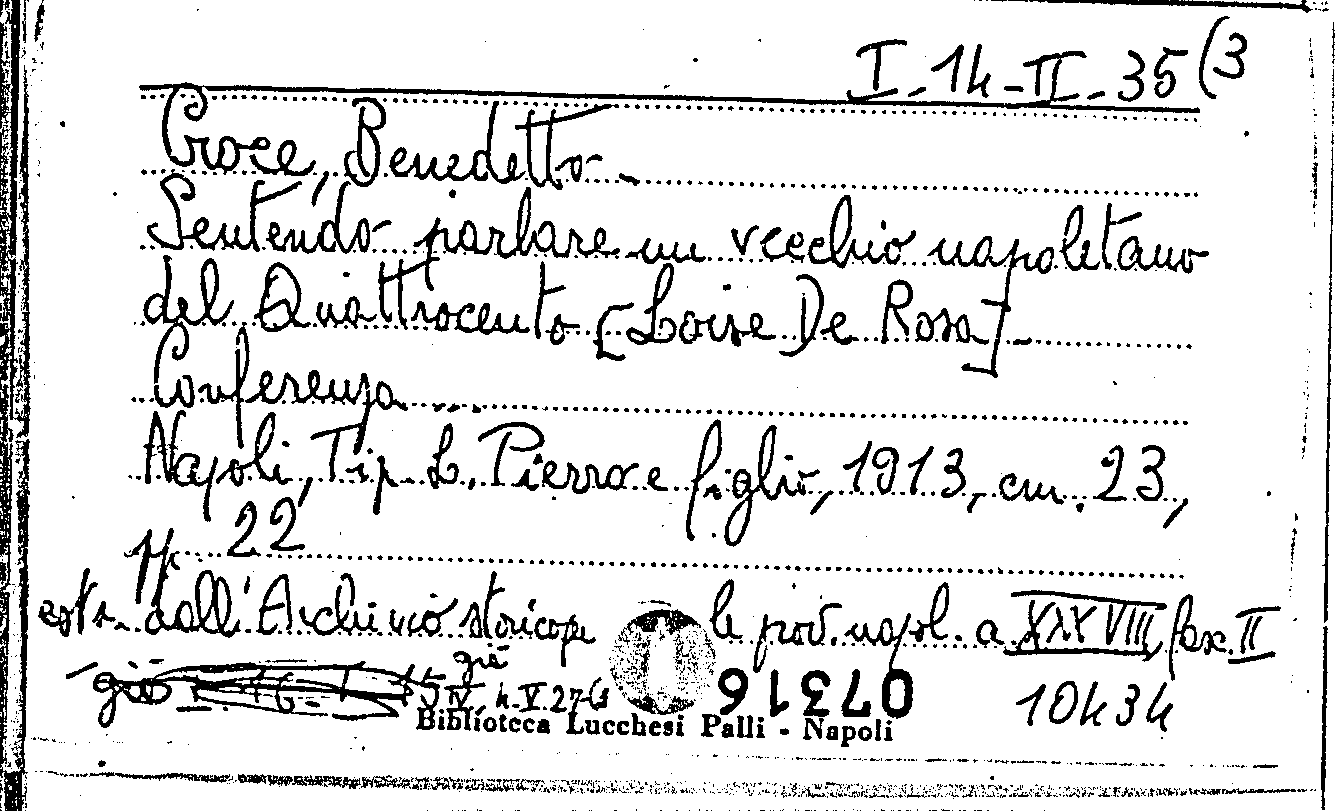 I-14-II-35(3
Croce, Benedetto -
Sentendo parlare un vecchio napoletano
del Quattrocento [Loise De Rosa] -
Conferenza ...
Napoli, Tip. L. Pierro e figlio, 1913, cm. 23,
pp. 22
estr. dall'Archivio storico pe le prov. napol. a XXXVIII, fasc. II
già
già IV. 4. V. 27(3 07316 10434
Biblioteca Lucchesi Palli - Napoli